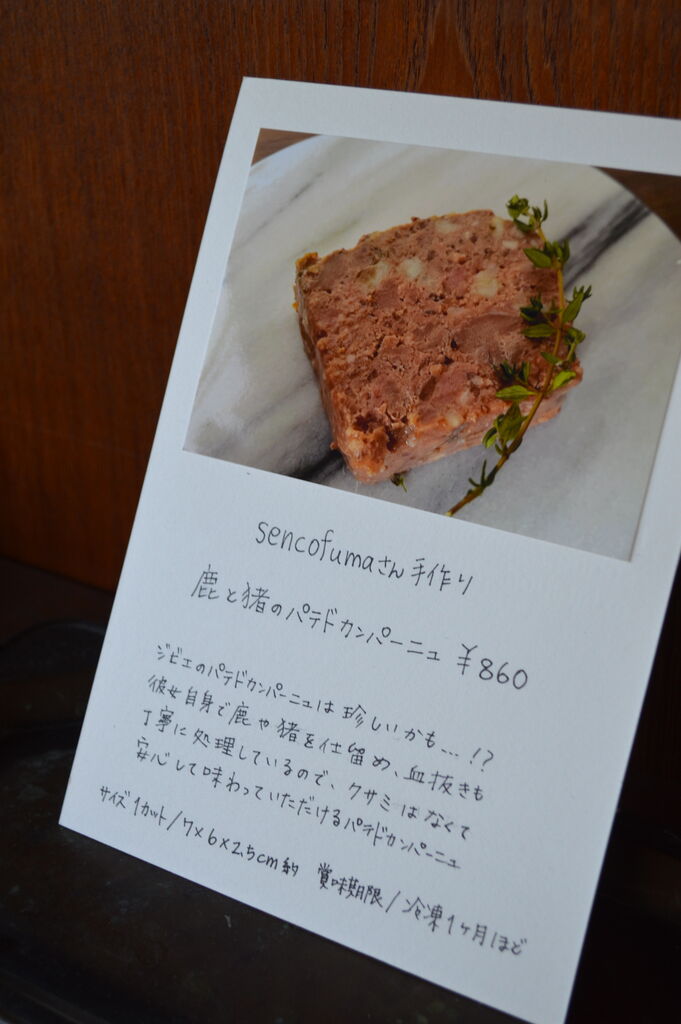 sencofumaさん手作り
鹿と猪のパテドカンパーニュ ¥860
ジビエのパテドカンパーニュは珍しいかも…!?
彼女自身で鹿や猪を仕留め、血抜きも
丁寧に処理しているので、クサミはなくて
安心して味わっていただけるパテドカンパーニュ
サイズ1カット/7×6×2.5cm約 賞味期限/冷凍1ヶ月ほど